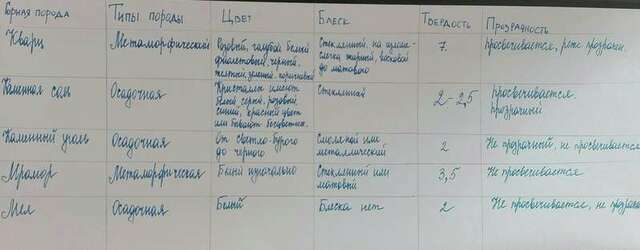 Горная порода Типы породы Цвет Блеск Твердость Прозрачность
Кварц Метаморфический Розовый, голубой белый Стеклянный, на изломе - 7 просвечивается, реже прозрачен.
фиолетовый, черный. слегка жирный, восковой
желтый, зеленый, коричневый до матового
Каменная соль Осадочная Кристаллы имеют Стеклянная 2-2,5 просвечивается.
белый, серый, розовый, прозрачный
синий, красный цвет
или бывают бесцветные.
Каменный уголь Осадочная От светло-бурого Смоляной или 2 Не прозрачный, не просвечивается
до черного металлический
Мрамор Метаморфическая Белый изначально Стеклянный или 3,5 Не просвечивается
матовый
Мел Осадочная Белый Блеска нет 2 Не просвечивается, не прозрачн